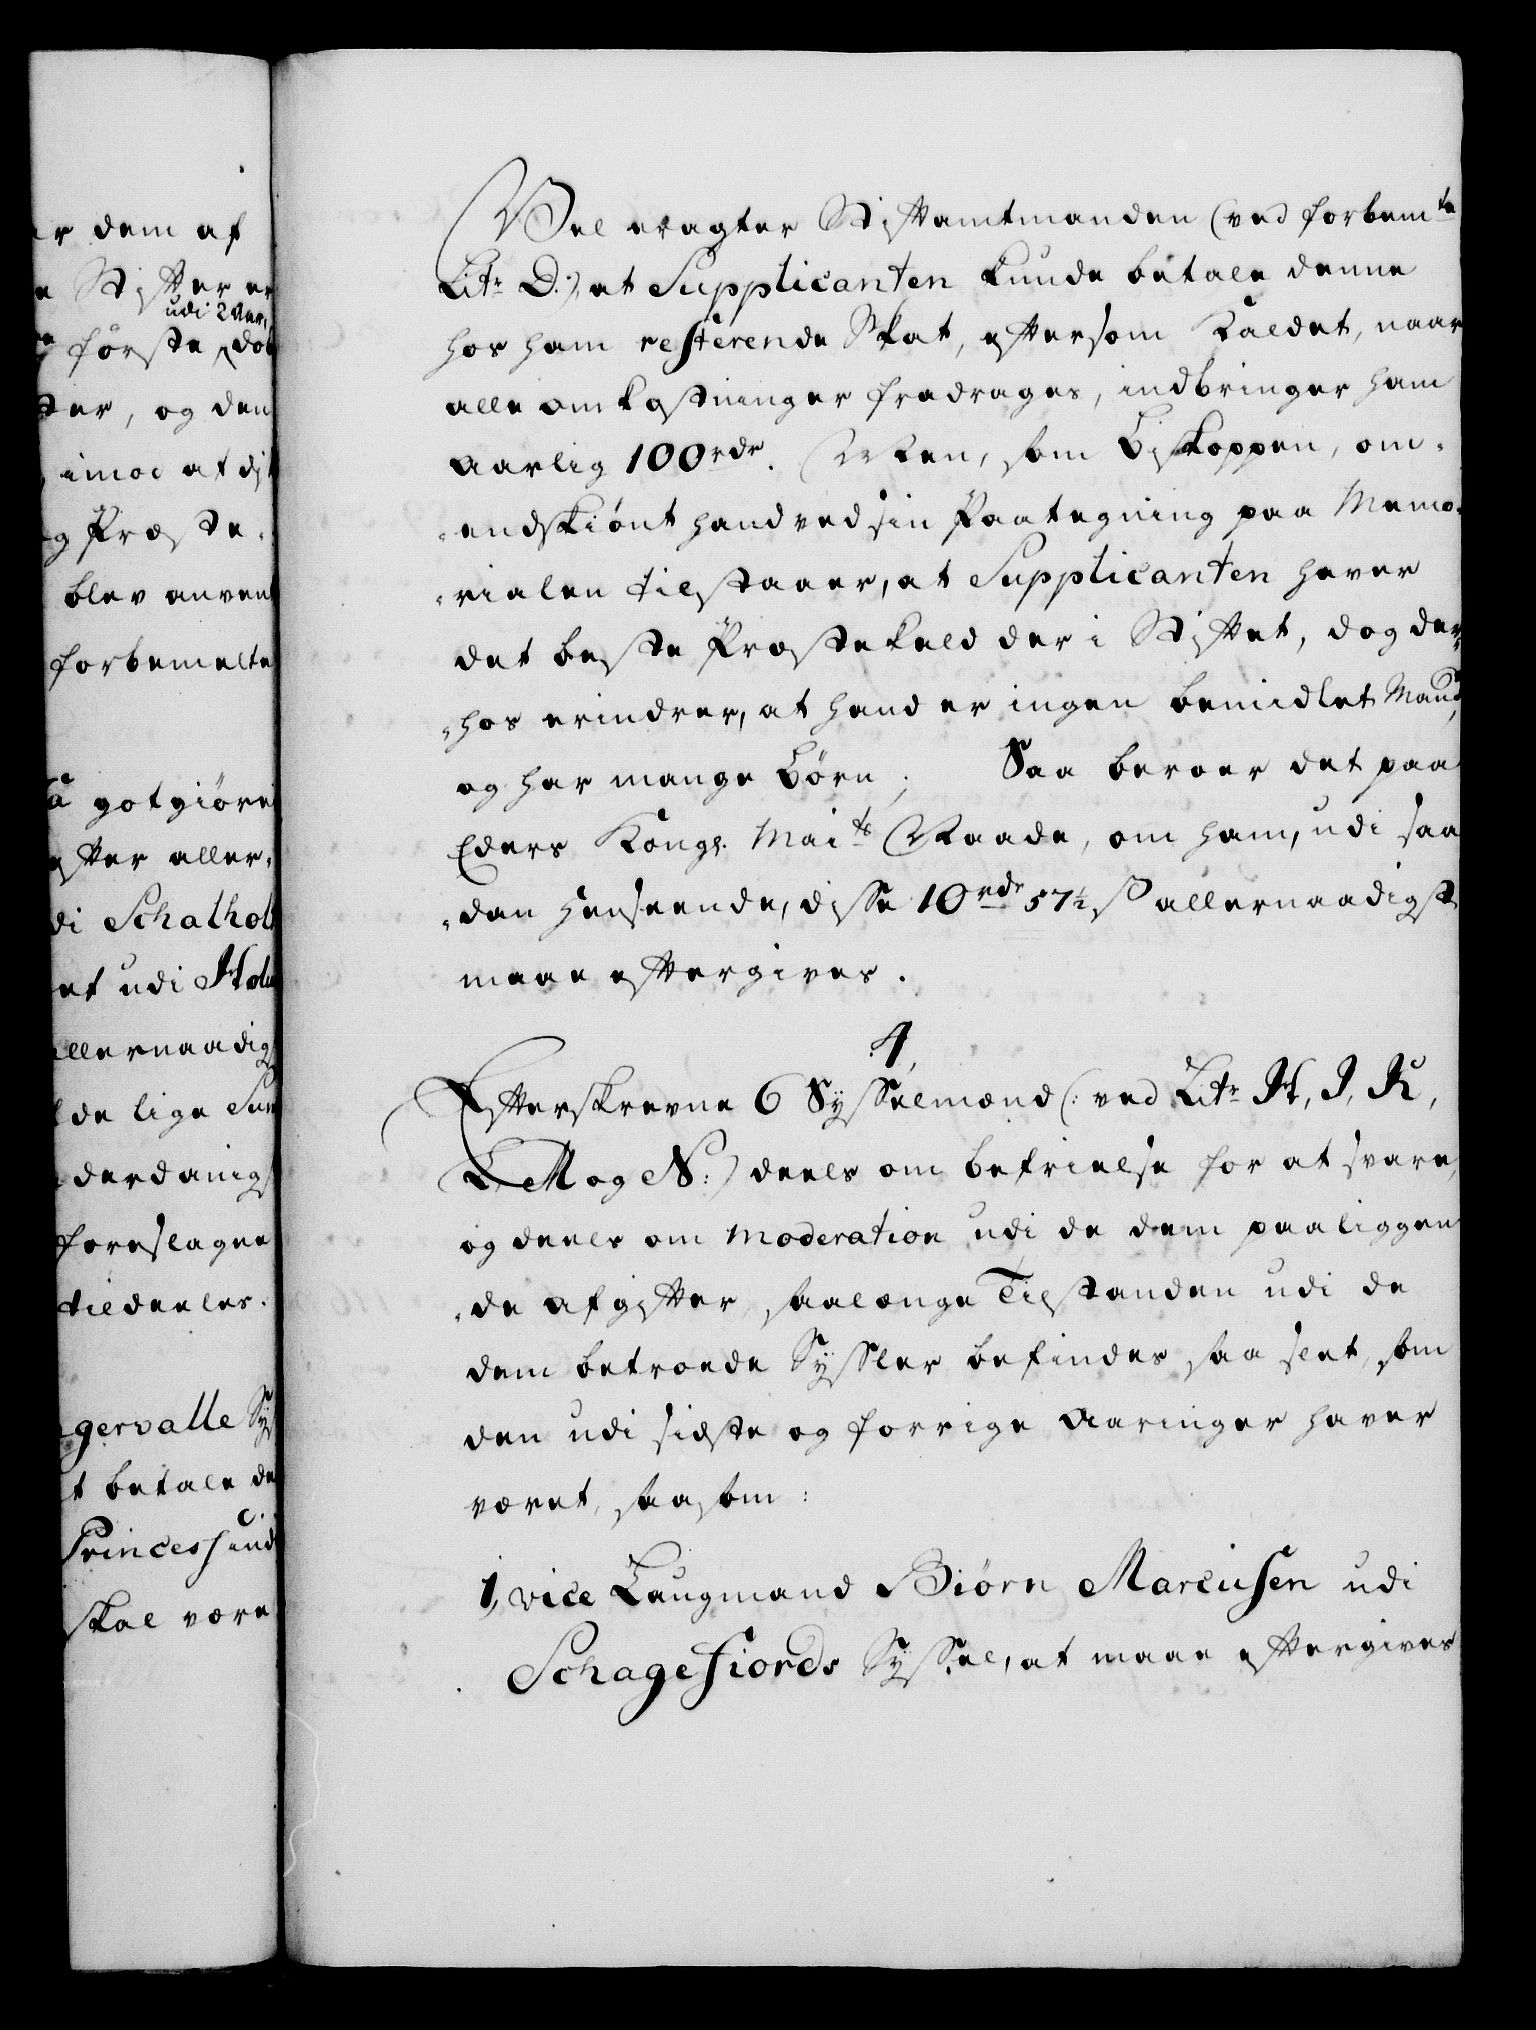 er dem af
e Stifter er
udi 2 Aar,
første dob
ter, og den
imod at di
og Præste-
blev anvent
forbemelte
godtgiøre
efter aller-
di Schalholt
et udi Hol
allernaadigst
de lige Sum
derdanigst
foreslagne
tildeeles.
gervalle Sy
t betale de
Princessind
skal være
Vel eragter Stiftamtmanden (ved forbemte
Litr D:), at Supplicanten kunde betale denne
hos ham resterende Skat, eftersom Kaldet, naar
alle omkostninger fradrages, indbringer ham
aarlig 100 rdr. Men, som Biskoppen, om-
-endskiønt hand ved sin Paategning paa Memo-
-rialen tilstaaer, at Supplicanten haver
det beste Præstekald der i Stiftet, dog der-
-hos erindrer, at hand er ingen bemidlet Mand,
og har mange Børn; Saa beroer det paa
Eders Kongl. Maits Naade, om ham, udi saa
-dan henseende, disse 10 rdr 57½ s allernaadigst
maae eftergives.
4,
Efterskrevne 6 Sysselmænd (: ved Litr H, I, K,
L, M og N:) deels om befrielse for at svare,
og deels om Moderation udi de dem paaliggen
-de afgifter, saalænge Tilstanden udi de
dem betroede Sysler befindes saa slet, som
den udi sidste og forrige Aaringer haver
været, saasom:
1, vice Laugmand Biørn Marcusen udi
Schagefiords Syssel, at maae eftergives